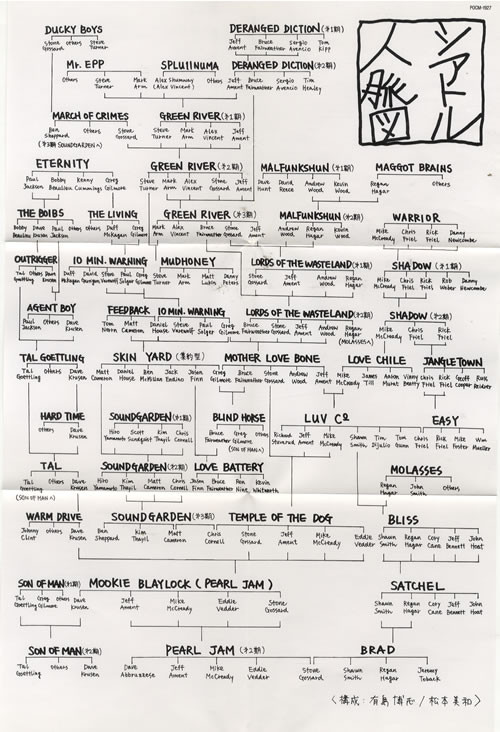 PGCM-1027
シアトル
人脈図
DUCKY BOYS
DERANGED DICTION (第1期)
Stone Gossard
others
Steve Turner
Jeff Ament
Bruce Fairweather
Sergio Avencio
Tom Kipp
Mr. EPP
SPLUIINUMA
DERANGED DICTION (第2期)
Others
Steve Turner
Mark Arm
Alex Shumway (Alex Vincent)
Others
Jeff Ament
Bruce Fairweather
Sergio Avencio
Tom Healey
MARCH OF CRIMES
GREEN RIVER (第1期)
Ben Sheppard
Others
Stone Gossard
Steve Turner
Mark Arm
Alex Vincent
Jeff Ament
(第3期 SOUNDGARDENへ)
ETERNITY
GREEN RIVER (第2期)
MALFUNKSHUN (第1期)
MAGGOT BRAINS
Paul Jackson
Bobby Beaulieu
Kenny Cummings
Greg Gilmore
Steve Turner
Mark Arm
Alex Vincent
Stone Gossard
Jeff Ament
Dave Hunt
David Reece
Andrew Wood
Kevin Wood
Regan Hagar
Others
THE BOIBS
THE LIVING
GREEN RIVER (第3期)
MALFUNKSHUN (第2期)
WARRIOR
Bobby Beaulieu
Dave Krusen
Paul Jackson
Others
Duff McKagan
Greg Gilmore
Mark Arm
Alex Vincent
Bruce Fairweather
Stone Gossard
Jeff Ament
Andrew Wood
Regan Hagar
Kevin Wood
Mike McCready
Chris Friel
Rick Friel
Danny Newcombe
OUTRIGGER
10 MIN. WARNING
MUDHONEY
LORDS OF THE WASTELAND (第1期)
SHADOW (第1期)
Tal Goettling
Others
Dave Krusen
Duff McKagan
David Garrigues
Steve Verwolf
Paul Solger
Greg Gilmore
Steve Turner
Mark Arm
Matt Lukin
Danny Peters
Stone Gossard
Jeff Ament
Andrew Wood
Regan Hagar
Mike McCready
Chris Friel
Rick Friel
Rob Weber
Danny Newcombe
AGENT BOY
FEEDBACK
10 MIN. WARNING
LORDS OF THE WASTELAND (第2期)
SHADOW (第2期)
Paul Jackson
Others
Dave Krusen
Tom
Matt Cameron
Daniel House
Steve Verwolf
Paul Solger
Greg Gilmore
Bruce Fairweather
Stone Gossard
Jeff Ament
Andrew Wood
Regan Hagar
(MOLASSESへ)
Mike McCready
Chris Friel
Rick Friel
TAL GOETTLING
SKIN YARD
MOTHER LOVE BONE
LOVE CHILE
JANGLETOWN
Tal Goettling
Others
Dave Krusen
Matt Cameron
Daniel House
Ben McMillan
Jack Endino
Jason Finn
Greg Gilmore
Bruce Fairweather
Stone Gossard
Andrew Wood
Jeff Ament
Mike McCready
James Till
Aaron Murat
Vinny Beatty
Chris Friel
Rick Friel
Geoff Cooper
Russ Reidner
HARD TIME
SOUNDGARDEN (第1期)
BLIND HORSE
LUV Co
EASY
Others
Dave Krusen
Hiro Yamamoto
Scott Sundquist
Kim Thayil
Chris Cornell
Bruce Fairweather
Greg Gilmore
Others
(SON OF MANへ)
Richard Stuverud
Jeff Ament
Mike McCready
Shawn Smith
Tim DiJulio
Tom Gunn
Chris Friel
Rick Friel
Mike Foster
Wim Mueller
TAL
SOUNDGARDEN (第2期)
LOVE BATTERY
MOLASSES
Tal Goettling
Others
Dave Krusen
Hiro Yamamoto
Kim Thayil
Matt Cameron
Chris Cornell
Jason Finn
Bruce Fairweather
Ron Nine
Kevin Whitworth
Regan Hagar
John Smith
Others
(SON OF MANへ)
WARM DRIVE
SOUNDGARDEN (第3期)
TEMPLE OF THE DOG
BLISS
Johnny Clint
Others
Dave Krusen
Ben Sheppard
Kim Thayil
Matt Cameron
Chris Cornell
Stone Gossard
Jeff Ament
Mike McCready
Eddie Vedder
Shawn Smith
Regan Hagar
Cory Cane
Jeff Bennett
John Hoat
SON OF MAN (第1期)
MOOKIE BLAYLOCK (PEARL JAM)
SATCHEL
Tal Goettling
Greg Gilmore
Others
Dave Krusen
Jeff Ament
Mike McCready
Eddie Vedder
Stone Gossard
Shawn Smith
Regan Hagar
Cory Cane
Jeff Bennett
John Hoat
SON OF MAN (第2期)
PEARL JAM (第2期)
BRAD
Tal Goettling
Others
Dave Krusen
Dave Abbruzzese
Jeff Ament
Mike McCready
Eddie Vedder
Stone Gossard
Shawn Smith
Regan Hagar
Jeremy Toback
〈構成：有島博志/松本美和〉